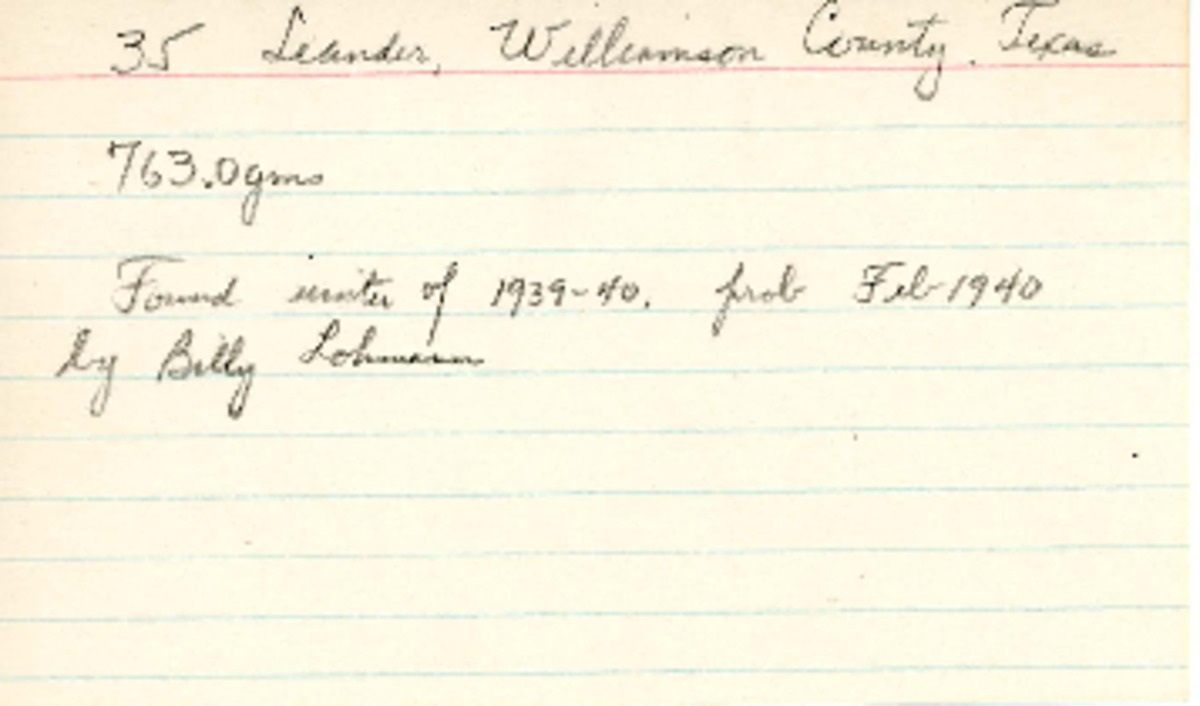 35 Leander, Williamson County. Texas
763.0gms
Found winter of 1939-40. prob Feb 1940
by Billy Lohmann